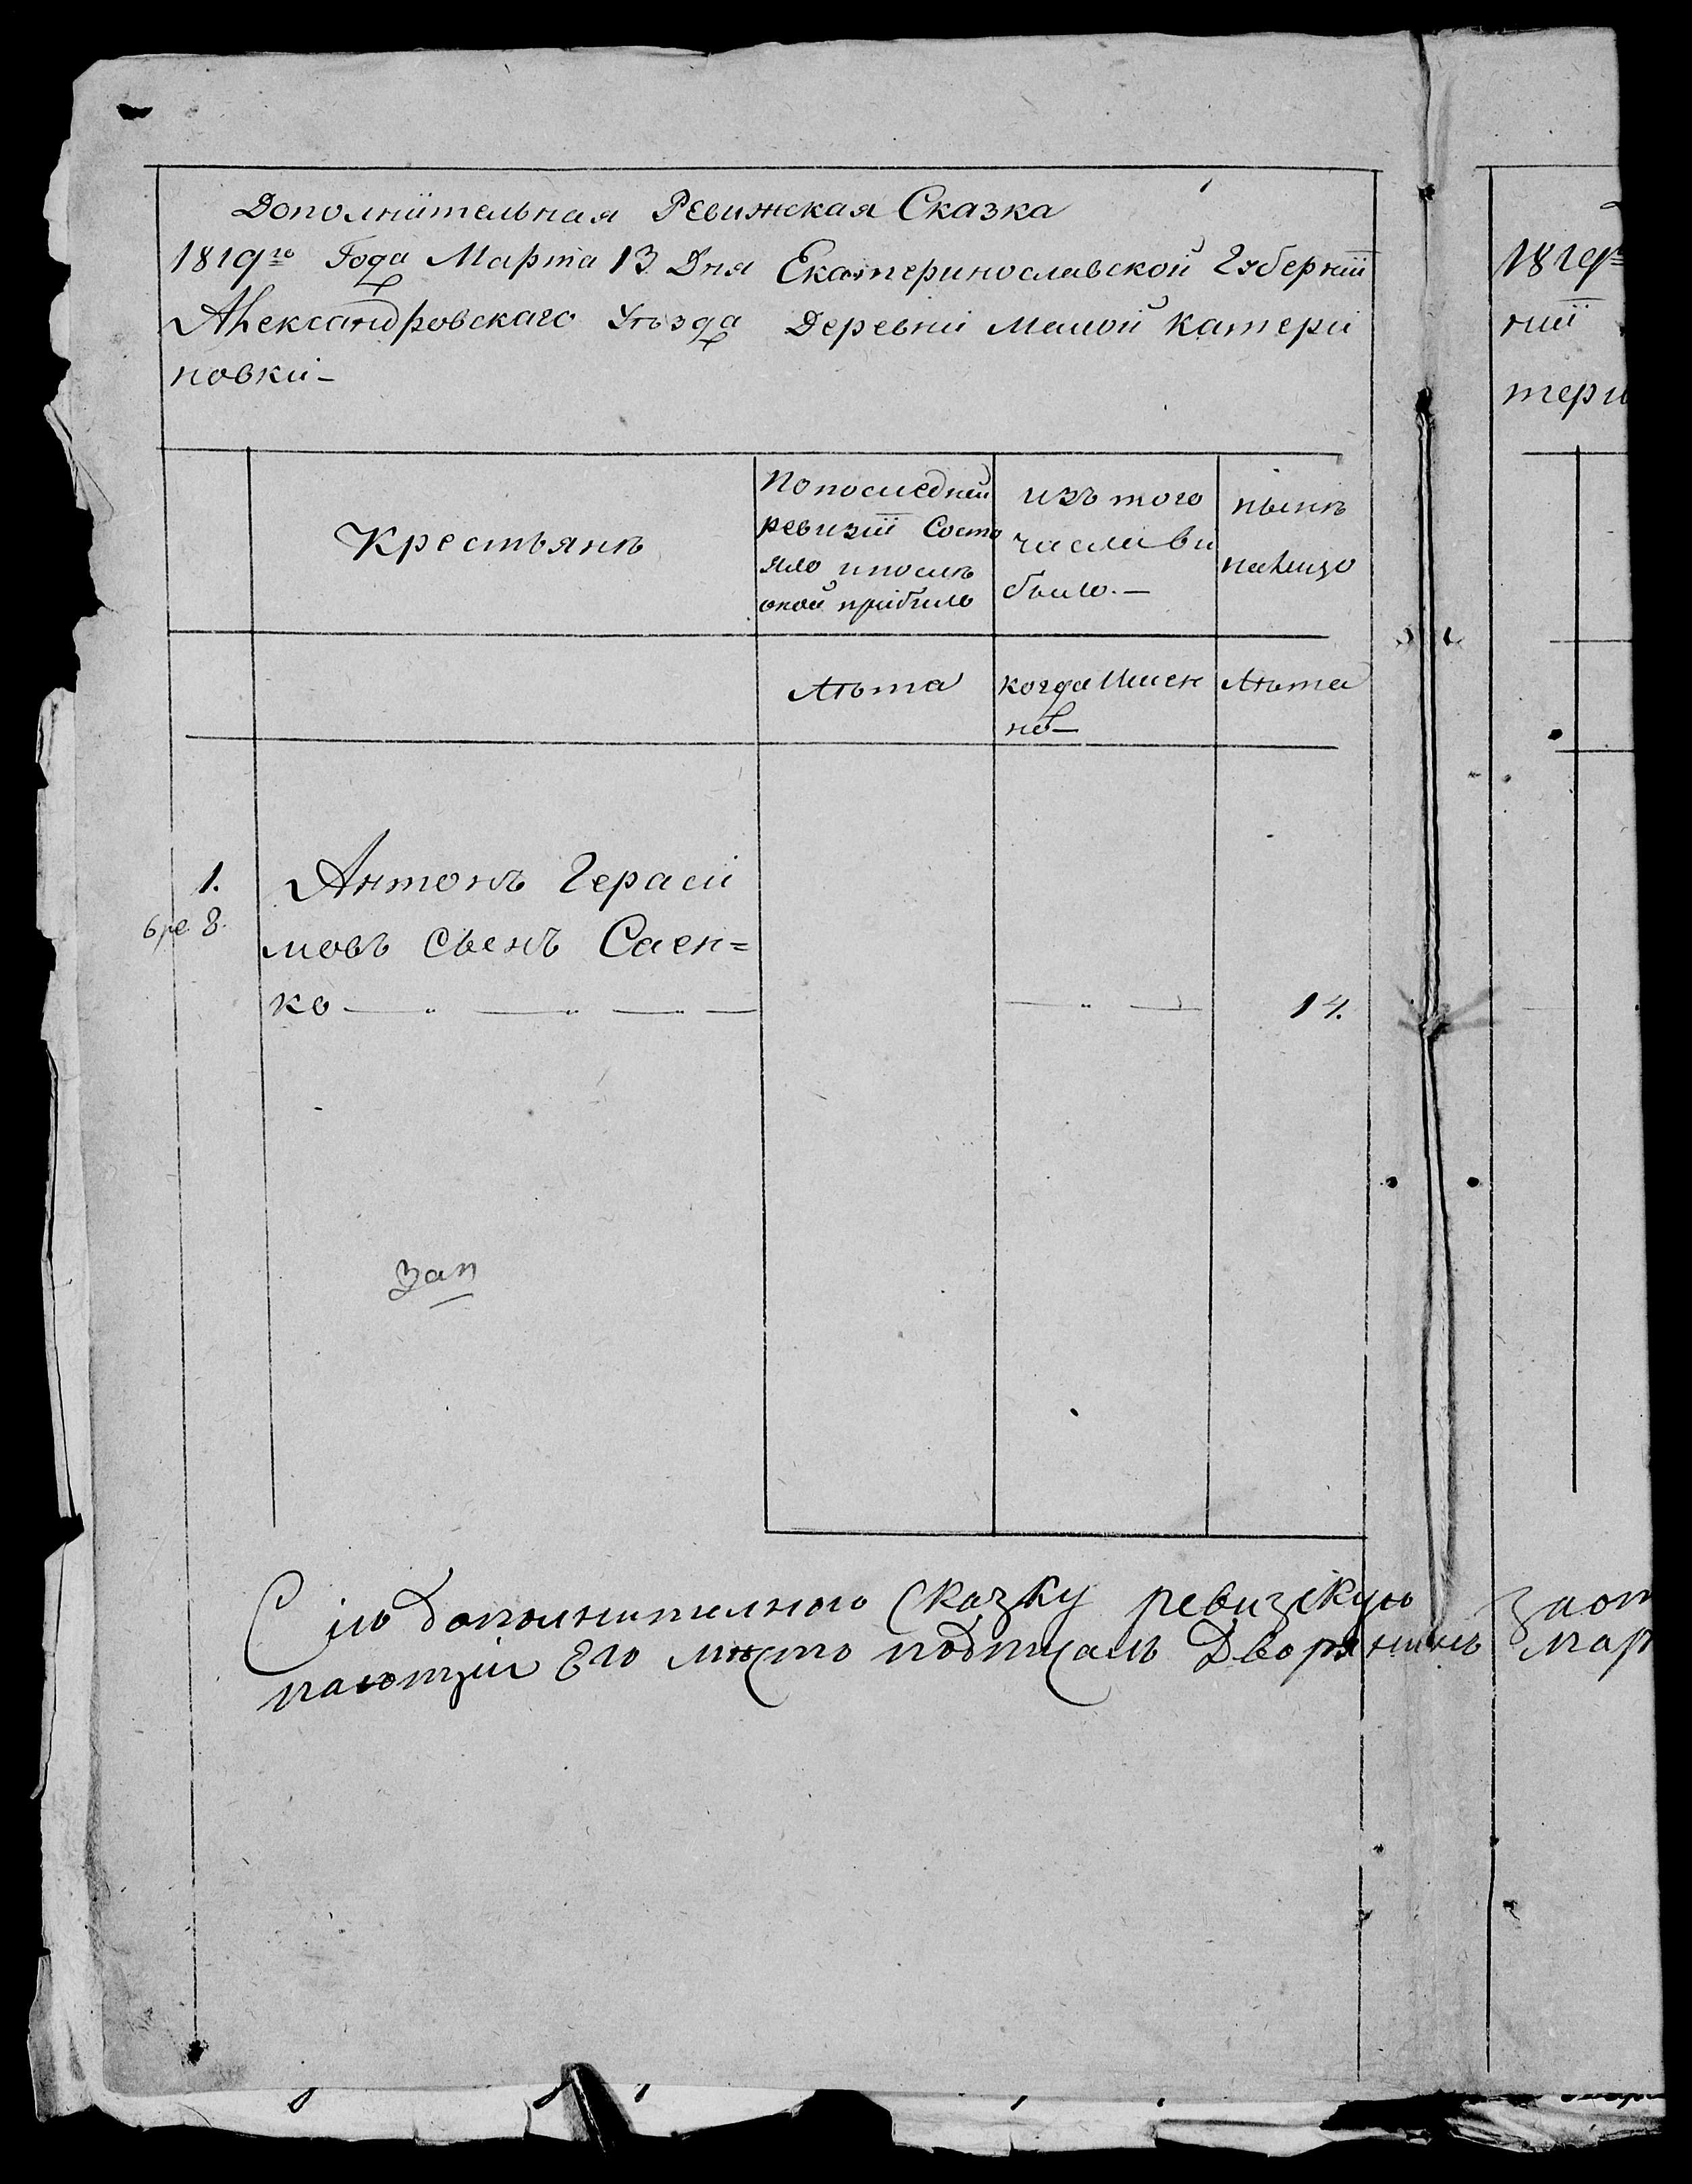 Дополнительная Ревижская Сказка
1819го Года Марта 13 Дня Екатеринославской Губерніи
Александровскаго Уѣзда Деревни малой катери
новки-
Крестьянъ
По последней
ревизіи Состо
яло и послѣ
оной прибило
изъ того
числа ви
было.-
нынѣ
налицо
лѣта
когда Имен
но-
лѣта
1.
Антонъ Гераси
мовъ сынъ Саен=
ко
14.
8.
зап
Сію дополнителную Сказку ревизскую
пающій Его мѣсто подписалъ Дворянинъ
1819го
ніи
тери
За от
мар